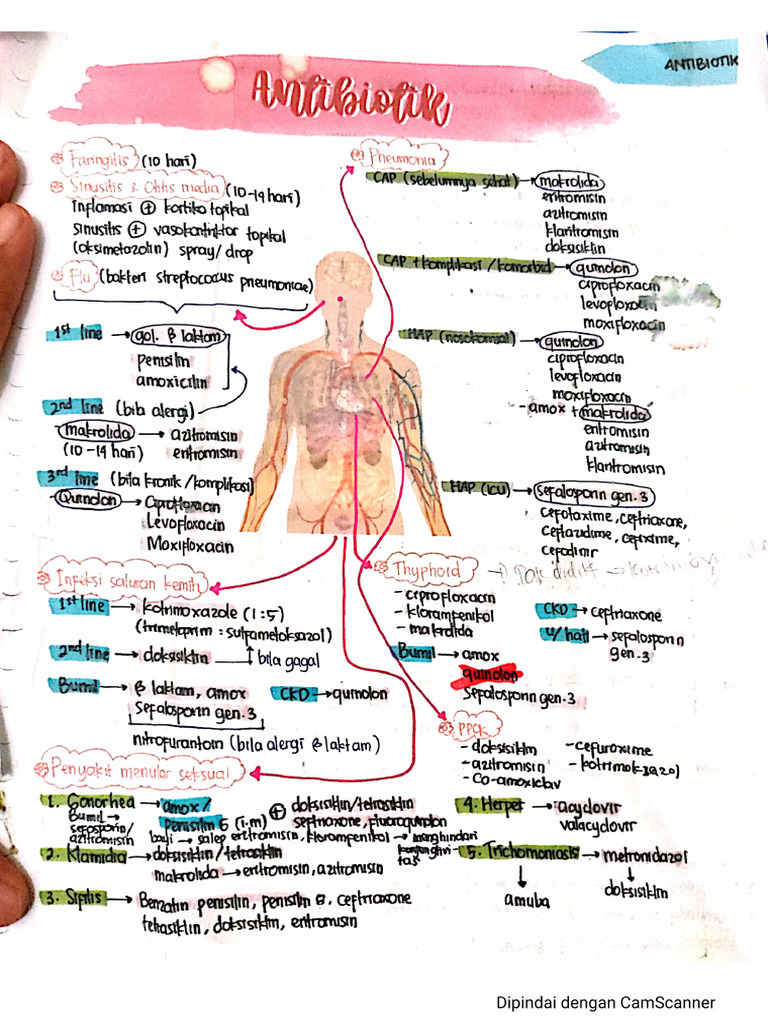 ANTIBIOTIK
Antibiotik
Faringitis (10 hari)
Sinusitis & Otitis media (10-14 hari)
Inflamasi + kortiko topikal
Sinusitis + vasokontriktor topikal
(oksimetazolin) spray/drop
Flu (bakteri streptococus pneumoniae)
1st line → gol. β laktam
penisilin
amoxicilin
2nd line (bila alergi)
makrolida → azitromisin
(10-14 hari) eritromisin
3rd line (bila kronik/komplikasi)
Quinolon → Ciprofloxacin
Levofloxacin
Moxifloxacin
Pneumonia
CAP (sebelumnya sehat) → makrolida
eritromisin
azitromisin
klaritromisin
doksisiklin
CAP + komplikasi/komorbid → quinolon
ciprofloxacin
levofloxacin
moxifloxacin
HAP (nosokomial) → quinolon
ciprofloxacin
levofloxacin
moxifloxacin
- amox + makrolida
eritromisin
azitromisin
klaritromisin
HAP (ICU) → sefalosporin gen.3
cefotaxime, ceftriaxone,
ceftazidime, cefixime,
cefadinir
Infeksi saluran kemih
1st line → kotrimoxazole (1:5)
(trimetoprim : sulfametoksazol)
2nd line → doksisiklin → bila gagal
Bumil → β laktam, amox CKD → quinolon
sefalosporin gen.3
nitrofurantoin (bila alergi β laktam)
Thyphoid →
- ciprofloxacin
- kloramfenikol
- makrolida
Bumil → amox
quinolon
sefalosporin gen.3
CKD → ceftriaxone
4/hati → sefalosporin
gen.3
PPOK
- doksisiklin - cefuroxime
- azitromisin - kotrimoksazol
- co-amoxiclav
Penyakit menular seksual
1. Gonorhea → amox/ + doksisiklin/tetrasiklin
penisilin G (i.m) seftriaxone, fluoroquinolon
Bumil →
sefosporin/
azitromisin
bayi → salep eritromisin, kloromfenikol → menghindari
konjunghvi-
tas
2. Klamidia → doksisiklin/tetrasiklin
makrolida → eritromisin, azitromisin
3. Sipilis → Benzatin penisilin, penisilin G, ceftriaxone
tetrasiklin, doksisiklin, eritromisin
4. Herpes → acyclovir
valacyclovir
5. Trichomoniasis → metronidazol
↓ ↓
amuba doksisiklin
Dipindai dengan CamScanner